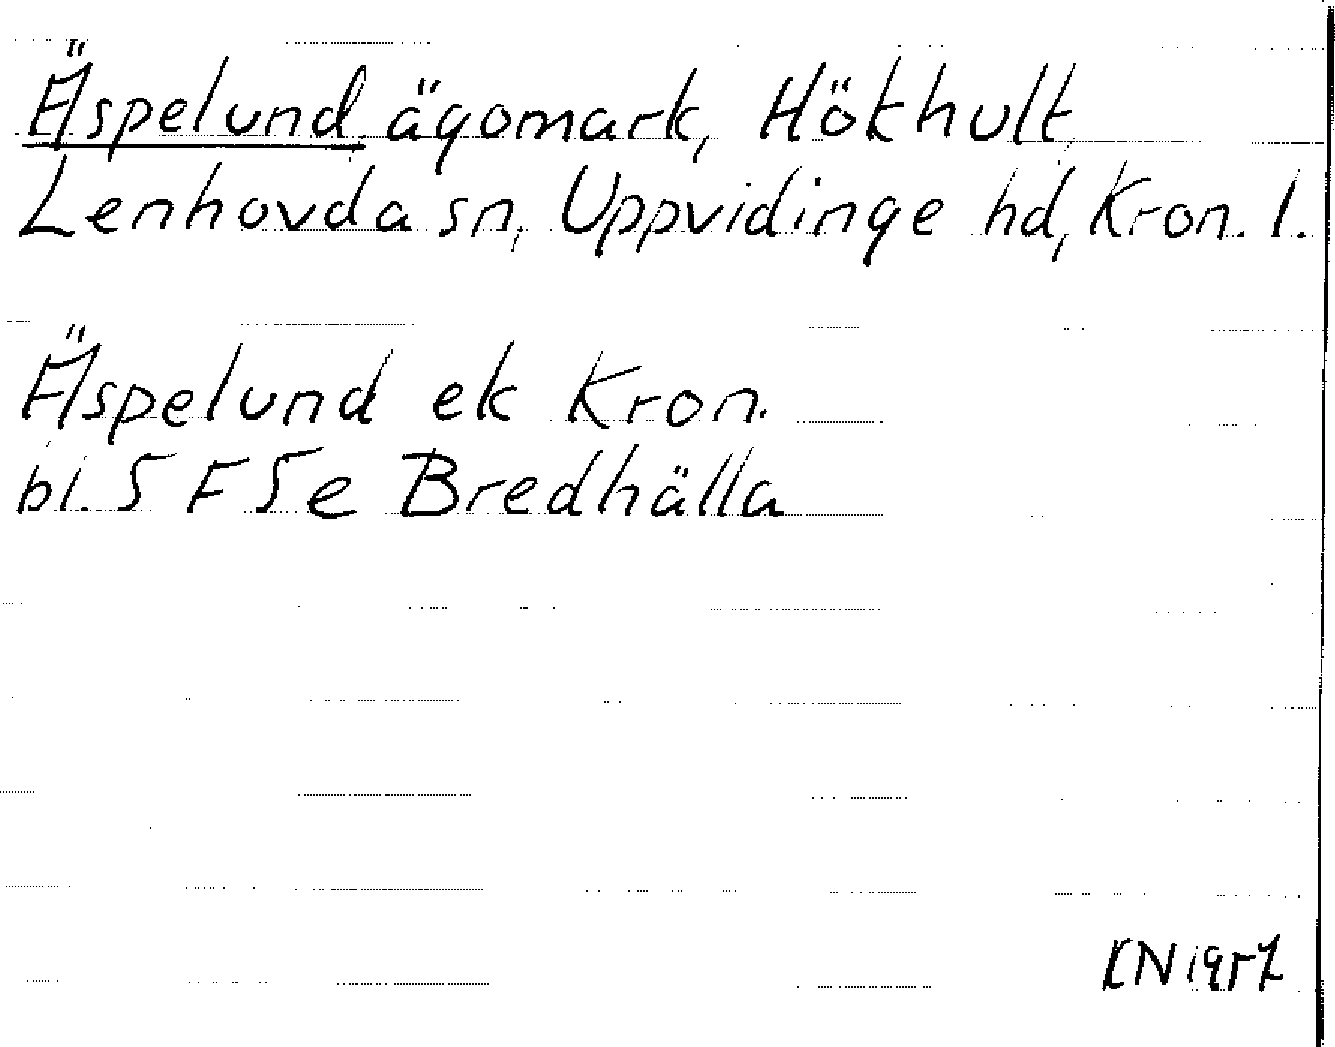 Äspelund, ägomark, Hökhult,
Lenhovda sn, Uppvidinge hd, Kron. l.
Äspelund ek Kron.
bl. 5 F 5 e Bredhälla